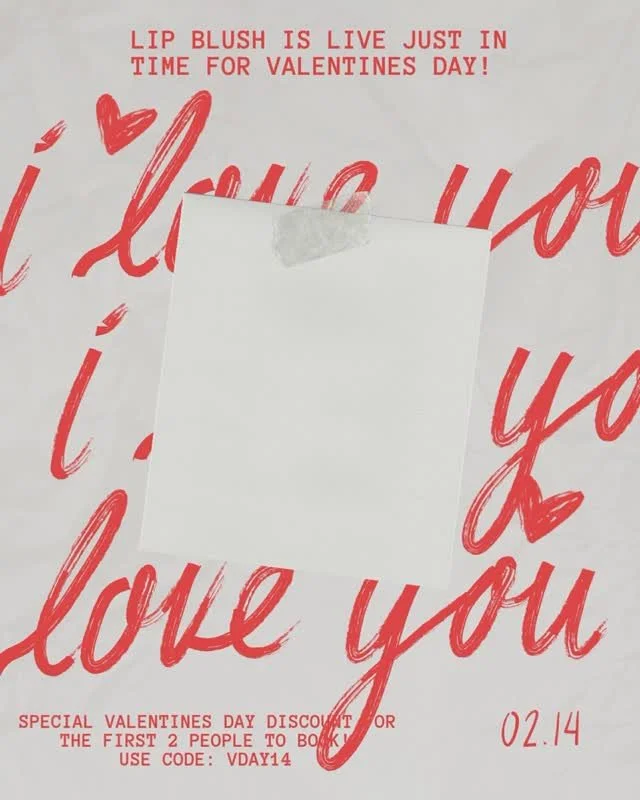 LIP BLUSH IS LIVE JUST IN
TIME FOR VALENTINES DAY!
i love you
i yo
love you
SPECIAL VALENTINES DAY DISCOUNT FOR
THE FIRST 2 PEOPLE TO BOOK!
USE CODE: VDAY14
02.14